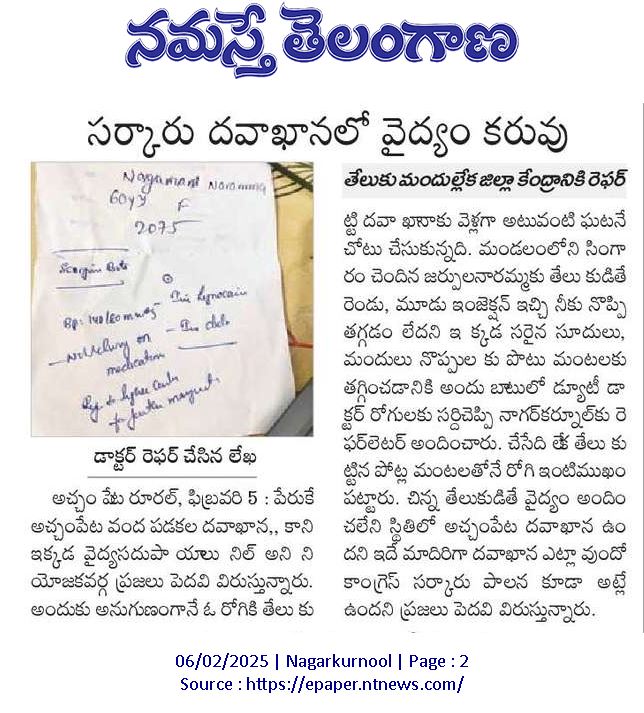 నమస్తే తెలంగాణ
సర్కారు దవాఖానలో వైద్యం కరువు
Nagamani Naramma
60y F
2075
Scorpion Bite
Inj Lignocain
Bp: 140/80 mmHg
Inj diclo
medication
డాక్టర్ రెఫర్ చేసిన లేఖ
అచ్చం పేట రూరల్, ఫిబ్రవరి 5 : పేరుకే
అచ్చంపేట వంద పడకల దవాఖాన,, కాని
ఇక్కడ వైద్యసదుపా యాలు నిల్ అని ని
యోజకవర్గ ప్రజలు పెదవి విరుస్తున్నారు.
అందుకు అనుగుణంగానే ఓ రోగికి తేలు కు
తేలుకు మందుల్లేక జిల్లా కేంద్రానికి రెఫర్
ట్టి దవా ఖానాకు వెళ్లగా అటువంటి ఘటనే
చోటు చేసుకున్నది. మండలంలోని సింగా
రం చెందిన జర్పులనారమ్మకు తేలు కుడితే
రెండు, మూడు ఇంజెక్షన్ ఇచ్చి నీకు నొప్పి
తగ్గడం లేదని ఇ క్కడ సరైన సూదులు,
మందులు నొప్పుల కు పొటు మంటలకు
తగ్గించడానికి అందు బాటులో డ్యూటీ డా
క్టర్ రోగులకు సర్దిచెప్పి నాగర్‌కర్నూల్‌కు రె
ఫర్‌లెటర్ అందించారు. చేసేది లేక తేలు కు
ట్టిన పోట్ల మంటలతోనే రోగి ఇంటిముఖం
పట్టారు. చిన్న తేలుకుడితే వైద్యం అందిం
చలేని స్థితిలో అచ్చంపేట దవాఖాన ఉం
దని ఇదే మాదిరిగా దవాఖాన ఎట్లా వుందో
కాంగ్రెస్ సర్కారు పాలన కూడా అట్లే
ఉందని ప్రజలు పెదవి విరుస్తున్నారు.
06/02/2025 | Nagarkurnool | Page : 2
Source : https://epaper.ntnews.com/